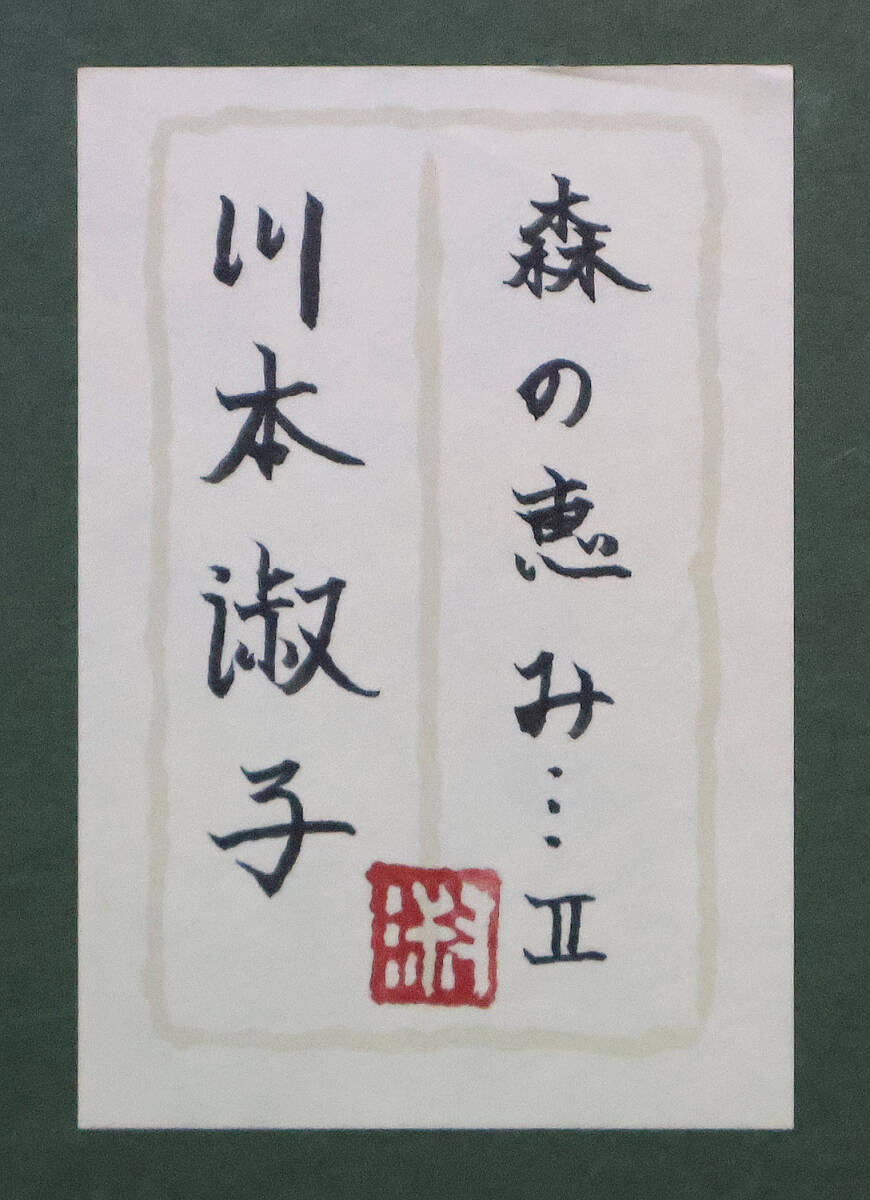 森の恵み…Ⅱ
川本淑子